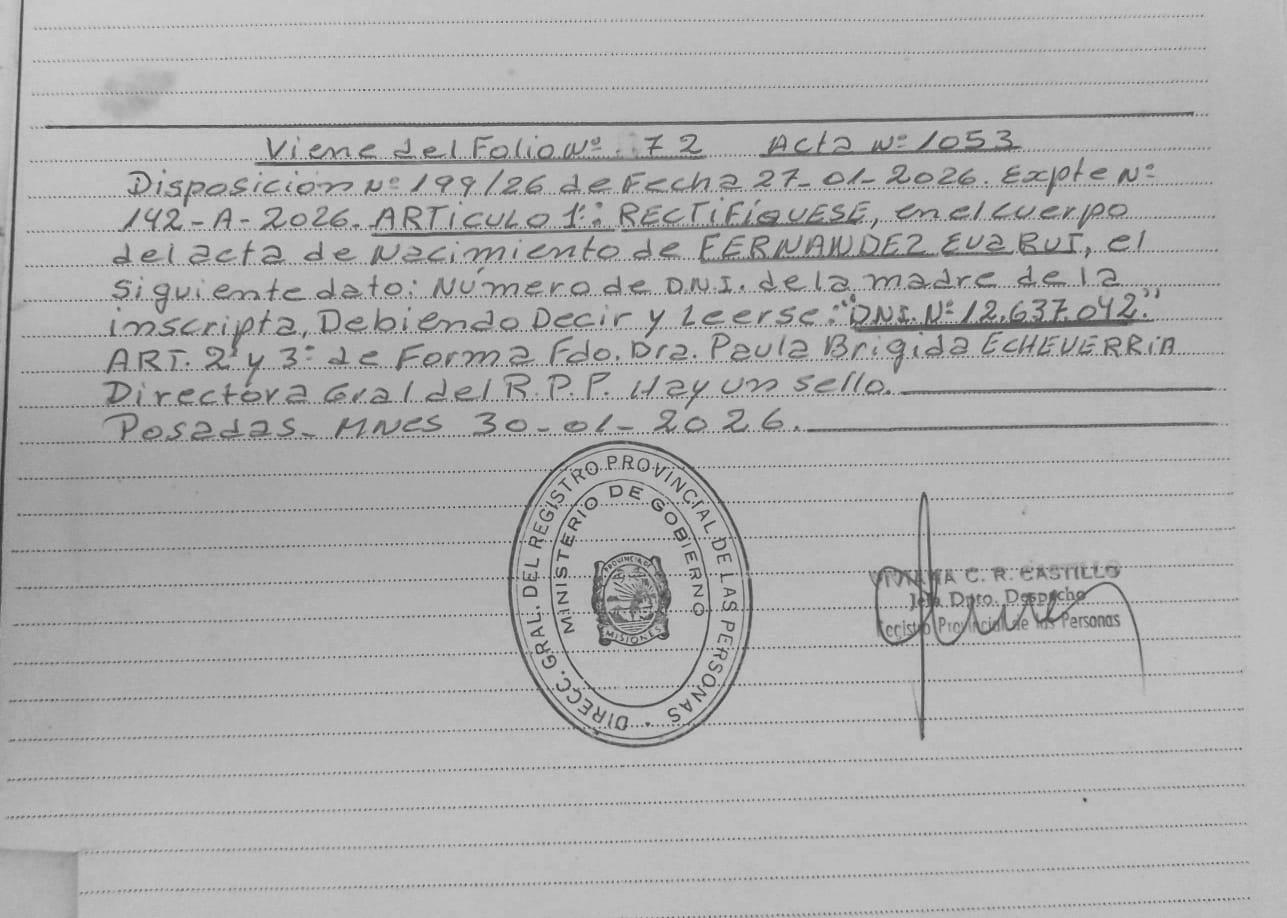 Viene del Folio Nº 72 Acta Nº 1053
Disposición Nº 199/26 de Fecha 27-01-2026. Expte Nº
142-A-2026. ARTICULO 1º: RECTIFIQUESE, en el cuerpo
del acta de Nacimiento de FERNANDEZ Eva RUT, el
siguiente dato: Número de D.N.I. de la madre de la
inscripta, Debiendo Decir y Leerse: "DNI. Nº 12.637.042."
ART. 2º y 3º de Forma Fdo. Dra. Paula Brigida ECHEVERRIA
Directora Gral del R.P.P. Hay un sello.
Posadas - MNES 30-01-2026.
DIRECC. GRAL. DEL REGISTRO PROVINCIAL DE LAS PERSONAS
MINISTERIO DE GOBIERNO
PROVINCIA DE
MISIONES
C. R. CASTILLO
Dpto. Despacho
Registro Provincial de las Personas